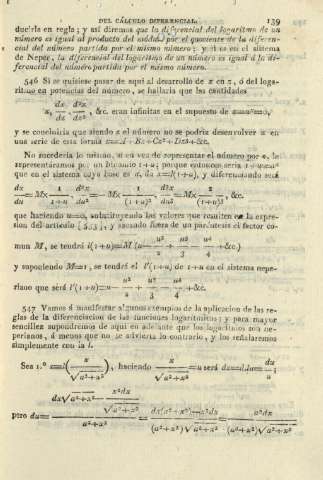 DEL CÁLCULO DIFERENCIAL. 139
ducirla en regla; y así diremos que la diferencial del logaritmo de un
número es igual al producto del módulo por el quociente de la diferen-
cial del número partida por el mismo número; y si es en el sistema
de Neper, la diferencial del logaritmo de un número es igual á la di-
ferencial del número partida por el mismo número.
546 Si se quisiese pasar de aquí al desarrollo de x en z, ó del loga-
ritmo en potencias del número, se hallaria que las cantidades
x, dx/dz, d²x/dz², &c. eran infinitas en el supuesto de
y se concluiria que siendo z el número no se podria desenvolver x en
una serie de esta forma x=A+Bz+Cz²+Dz3+&c.
No sucederia lo mismo, si en vez de representar el número por z, le
representáramos por un binomio 1+u; porque entonces seria 1+u=aˣ
que en el sistema cuya base es a, da x=l(1+u), y diferenciando será
dx/du=M× 1/1+u, d²x/du²=M× −1/(1+u)², d3x/du3=M× 2/(1+u)3, &c.
que haciendo u=0, substituyendo los valores que resulten en la expre-
sion del artículo [ ], y sacando fuera de un paréntesis el factor co-
mun M, se tendrá l(1+u)=M (u−u²/2+u3/3−u4/4+&c.)
y suponiendo M=1, se tendrá el l'(1+u) de 1+u en el sistema nepe-
riano que será l'(1+u)=u−u²/2+u3/3−u4/4+&c.
547 Vamos á manifestar algunos exemplos de la aplicacion de las re-
glas de la diferenciacion de las funciones logarítmicas; y para mayor
sencillez supondremos de aquí en adelante que los logaritmos son ne-
perianos, á menos que no se advierta lo contrario, y los señalaremos
simplemente con la l.
Sea 1.º z=l(x/√a²+x²), haciendo x/√a²+x²=u será dz=d.lu=du/u;
pero du= (dx√a²+x²−x²dx/√a²+x²)/a²+x² = dx(a²+x²)−x²dx/(a²+x²)√a²+x² = a²dx/(a²+x²)√a²+x²